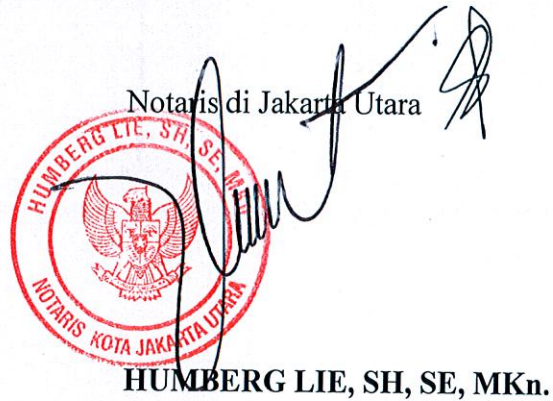 Notaris di Jakarta Utara
HUMBERG LIE, SH, SE, MKn
NOTARIS KOTA JAKARTA UTARA
HUMBERG LIE, SH, SE, MKn.